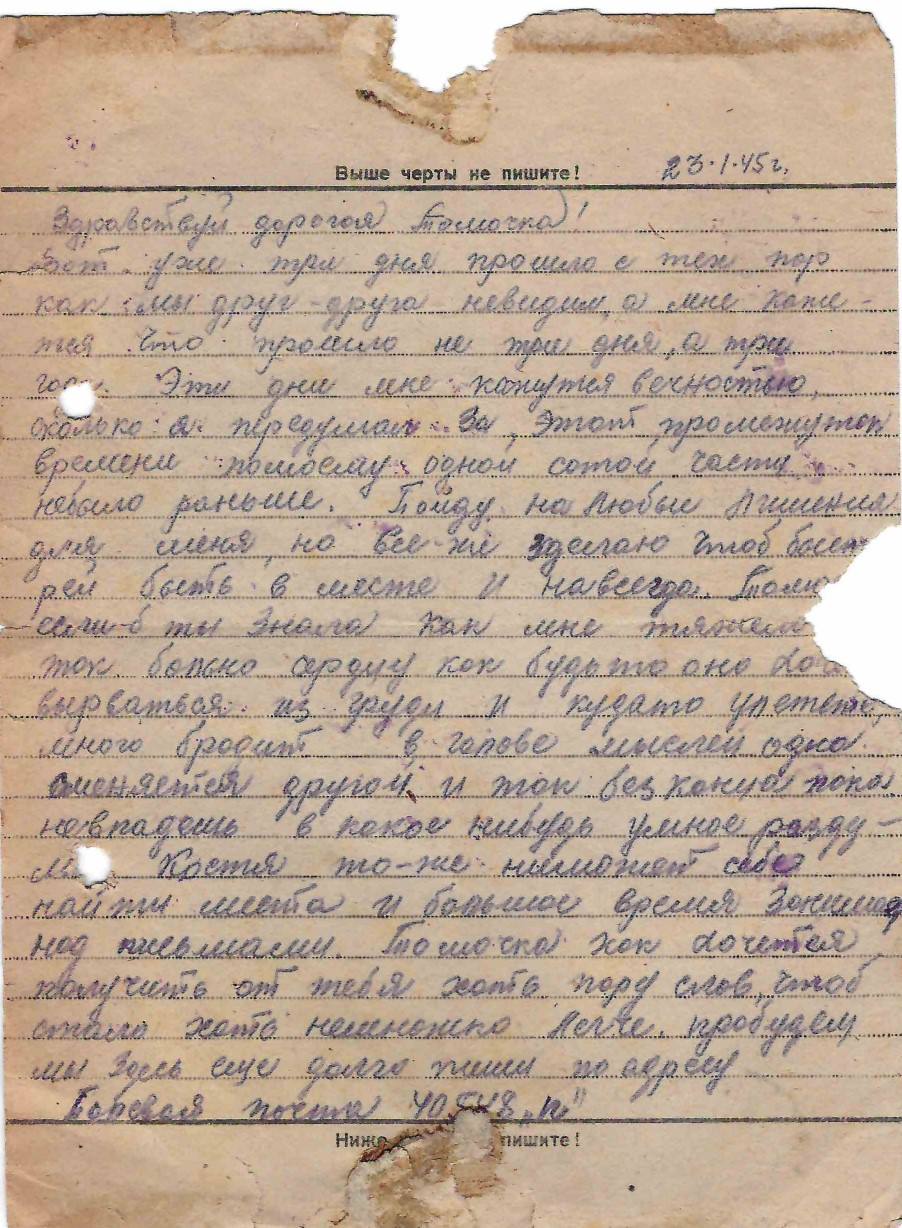 Выше черты не пишите!
23.1.45 г.
Здравствуй дорогая Томочка!
Вот уже три дня прошло с тех пор
как мы друг-друга невидим, а мне каже-
тся что прошло не три дня, а три
Эти дни мне кажутся вечностью,
сколько я передумал за этот промежуток
времени помоему одной сотой части
небыло раньше. Пойду на любые лишения
для меня, но все-же зделаю чтоб быст
рей быть в месте и навсегда. Томо
если-б ты знала как мне тяжело
так больно сердцу как будьто оно хоч
вырваться из груди и кудато улететь,
много бродит в голове мыслей одна
сменяется другой и так без конца пока
невпадешь в какое нибудь умное разду-
Костя то-же неможет себе
найти места и большое время занимает
над письмами. Томочка как хочется
получить от тебя хоть пару слов, чтоб
стало хоть немножко легче. пробудем
мы здесь еще долго пиши по адресу
Полевая почта 40548 „п"
Ниже пишите!